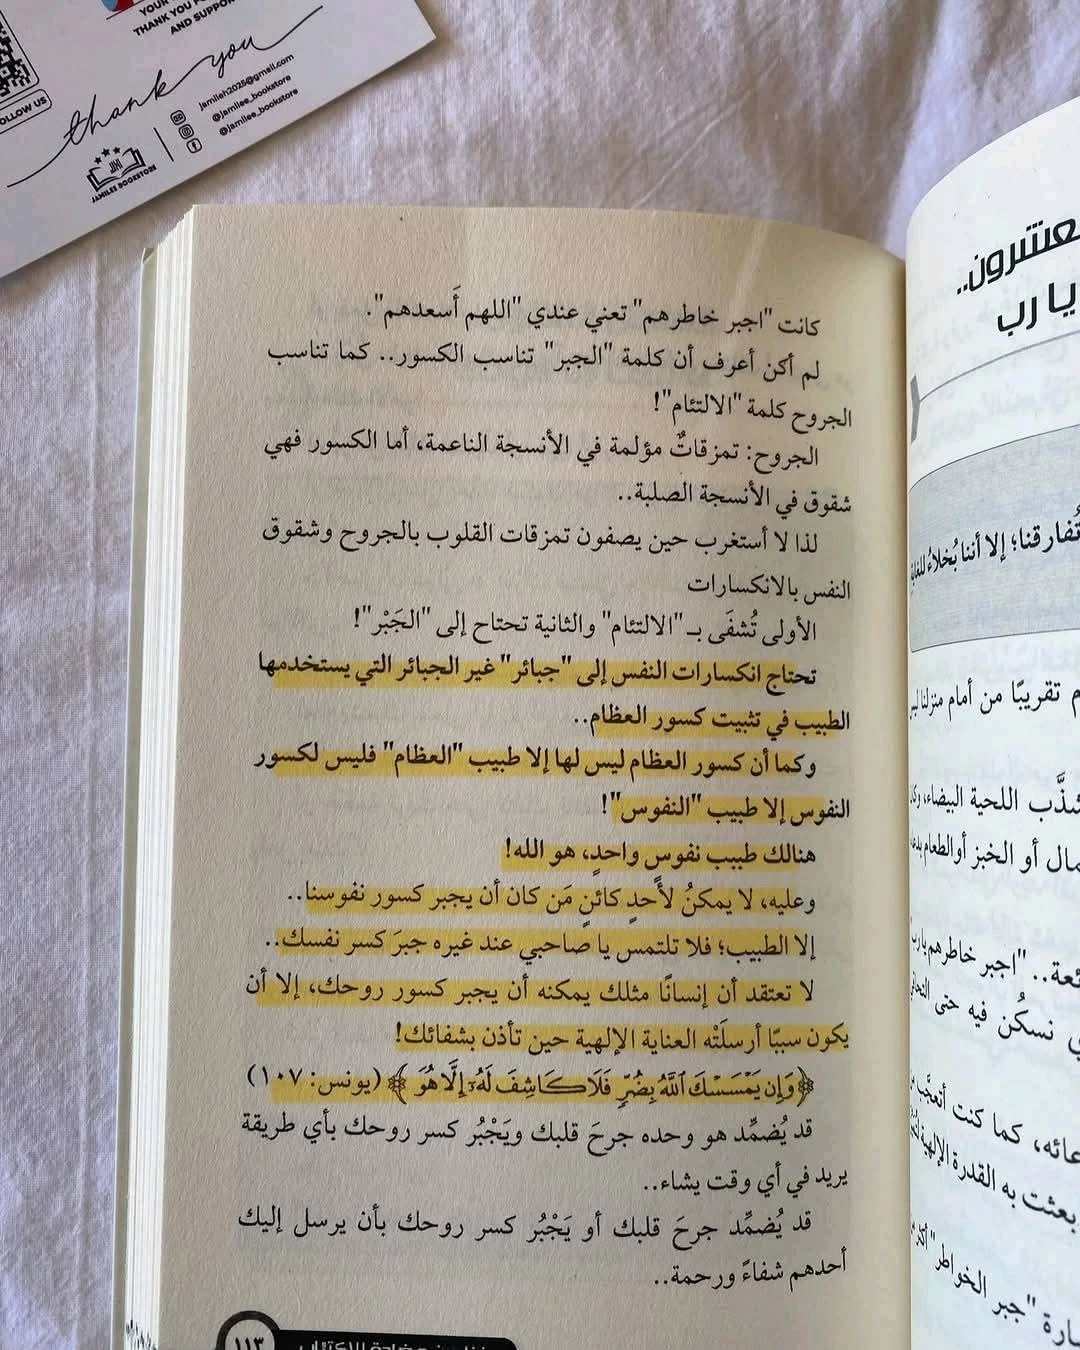 YOUR
THANK YOU FO
AND SUPPOR
thank you
OLLOW US
jamileh2025@gmail.com
@jamilee_bookstore
@jamilee_bookstore
JAMILEE BOOKSTORE
كانت "اجبر خاطرهم" تعني عندي "اللهم أَسعدهم".
لم أكن أعرف أن كلمة "الجبر" تناسب الكسور.. كما تناسب
الجروح كلمة "الالتئام"!
الجروح: تمزقاتٌ مؤلمة في الأنسجة الناعمة، أما الكسور فهي
شقوق في الأنسجة الصلبة..
لذا لا أستغرب حين يصفون تمزقات القلوب بالجروح وشقوق
النفس بالانكسارات
الأولى تُشفَى بـ "الالتئام" والثانية تحتاج إلى "الجَبْر"!
تحتاج انكسارات النفس إلى "جبائر" غير الجبائر التي يستخدمها
الطبيب في تثبيت كسور العظام..
وكما أن كسور العظام ليس لها إلا طبيب "العظام" فليس لكسور
النفوس إلا طبيب "النفوس"!
هنالك طبيب نفوس واحدٍ، هو الله!
وعليه، لا يمكنُ لأحدٍ كائنٍ مَن كان أن يجبر كسور نفوسنا..
إلا الطبيب؛ فلا تلتمس يا صاحبي عند غيره جبرَ كسر نفسك..
لا تعتقد أن إنسانًا مثلك يمكنه أن يجبر كسور روحك، إلا أن
يكون سببًا أرسلَتْه العناية الإلهية حين تأذن بشفائك!
﴿وَإِن يَمْسَسْكَ ٱللَّهُ بِضُرٍّ فَلَا كَاشِفَ لَهُۥٓ إِلَّا هُوَ﴾ (يونس: ١٠٧)
قد يُضمِّد هو وحده جرحَ قلبك ويَجْبُر كسر روحك بأي طريقة
يريد في أي وقت يشاء..
قد يُضمِّد جرحَ قلبك أو يَجْبُر كسر روحك بأن يرسل إليك
أحدهم شفاءً ورحمة..
١١٣
عشرون..
يا رب
تُفارقنا؛ إلا أننا بُخلاءُ
تقريبًا من أمام منزلنا
اللحية البيضاء،
أو الخبز أو الطعام
.. "اجبر خاطرهم يا رب
نسكُن فيه حتى
كما كنت أتعجَّب
بعثت به القدرة الإلهية
"جبر الخواطر" أكثر